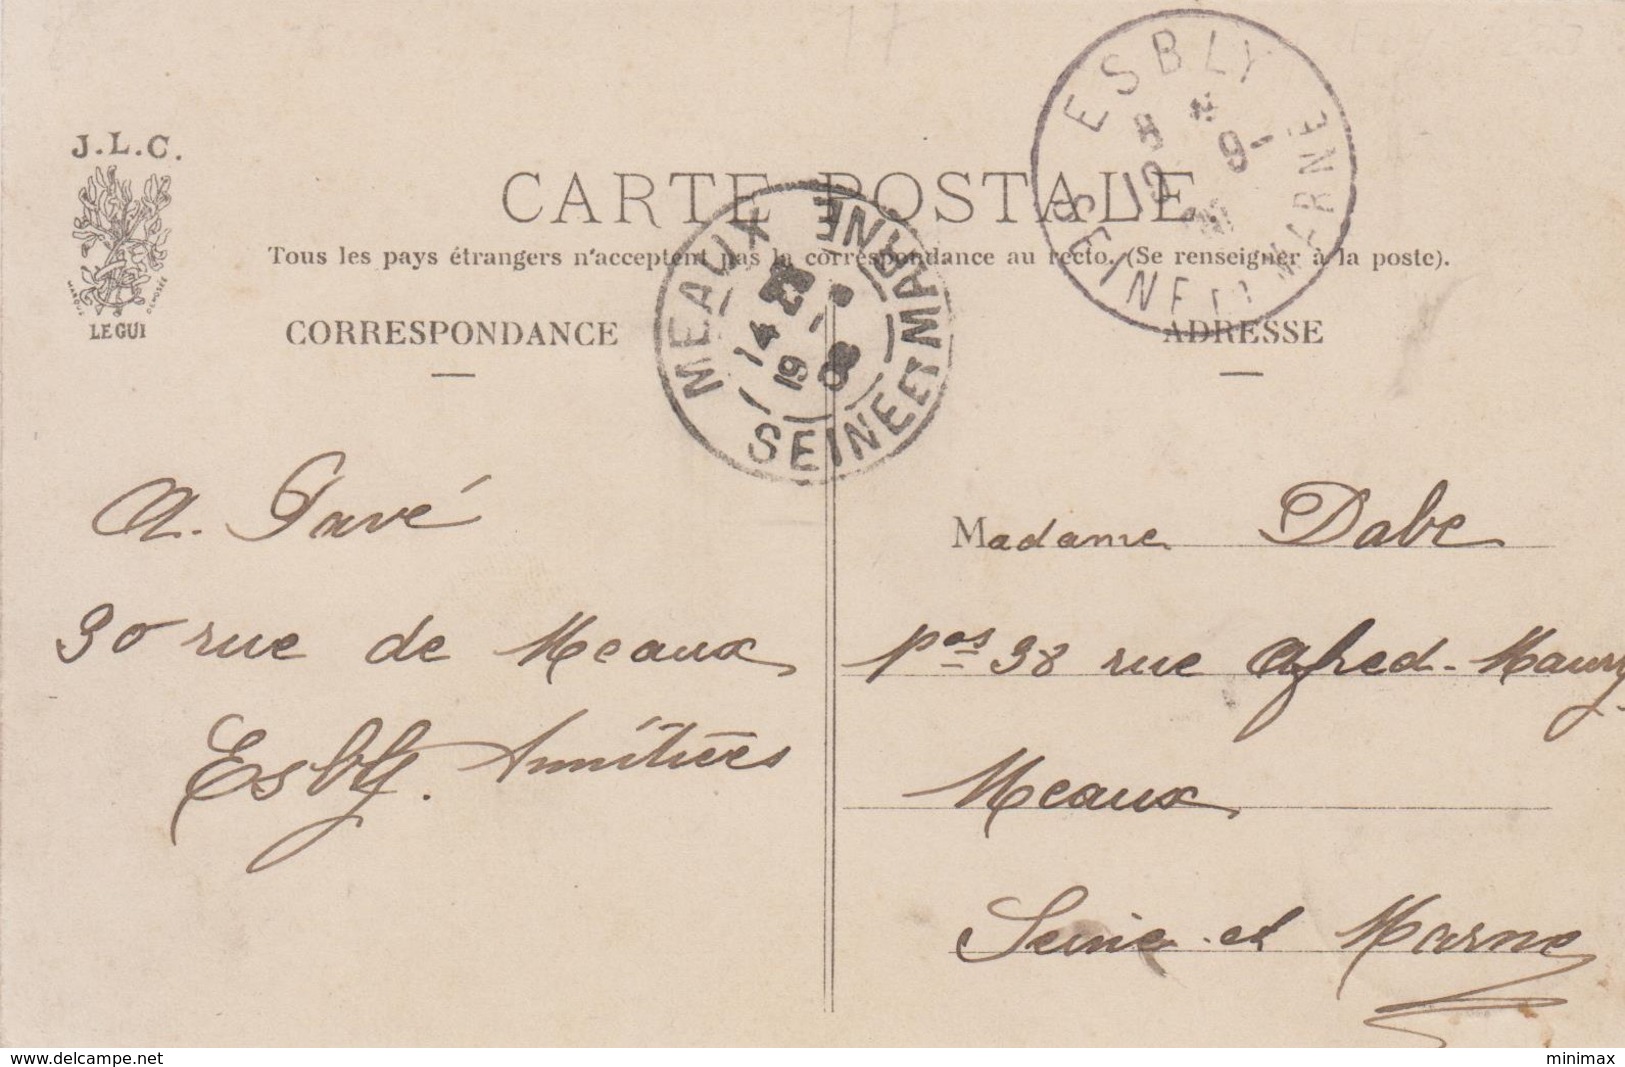 J.L.C.
LE GUI
CARTE POSTALE
Tous les pays étrangers n'acceptent pas la correspondance au recto. (Se renseigner à la poste).
CORRESPONDANCE
ADRESSE
MEAUX
SEINE ET MARNE
ESBLY
SEINE ET MARNE
A. Pavé
30 rue de Meaux
Esbly. Amitiées
Madame Dabe
38 rue Alfred-Maury
Meaux
Seine-et Marne
www.delcampe.net
minimax